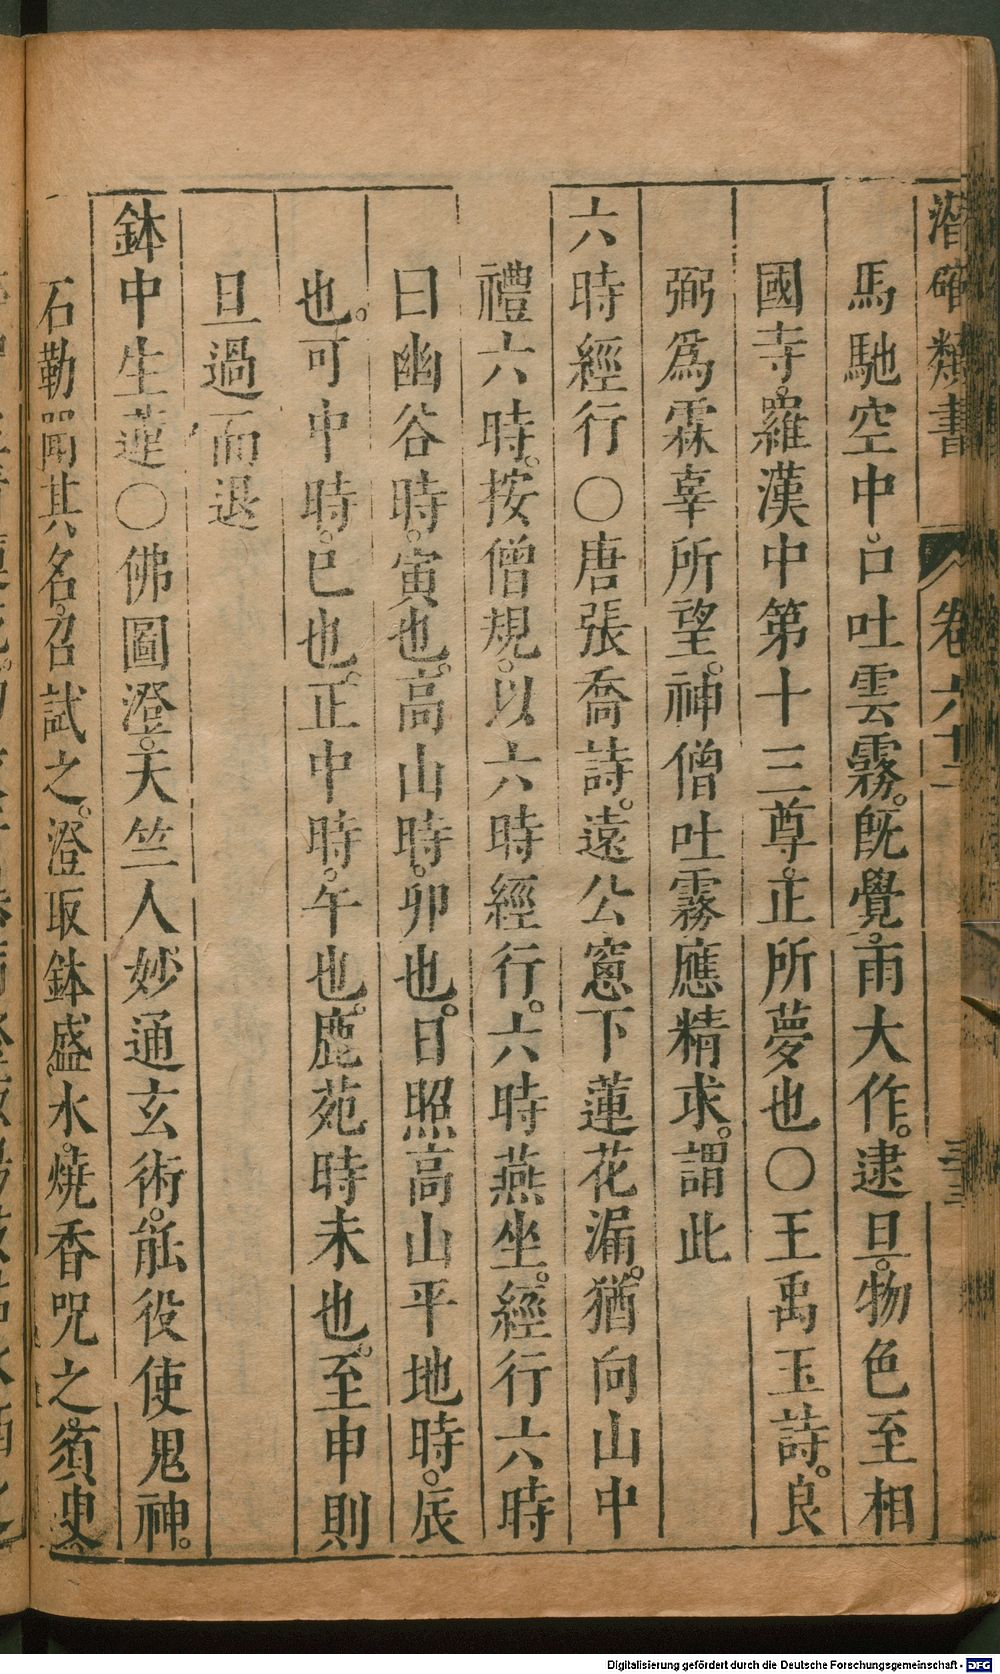 潛確類書 卷六十二 三十三
馬馳空中。口吐雲霧。旣覺。雨大作。逮旦。物色至相
國寺。羅漢中第十三尊。正所夢也〇王禹玉詩。良
弼爲霖辜所望。神僧吐霧應精求。謂此
六時經行〇唐張喬詩。遠公窻下蓮花漏。猶向山中
禮六時。按僧規。以六時經行。六時燕坐。經行六時
曰幽谷時。寅也。高山時。卯也。日照高山平地時。辰
也。可中時。巳也。正中時。午也。鹿苑時未也。至申則
旦過而退
鉢中生蓮〇佛圖澄。天竺人妙通玄術。能役使鬼神。
石勒聞其名。召試之。澄取鉢盛水。燒香呪之。須臾
Digitalisierung gefördert durch die Deutsche Forschungsgemeinschaft - DFG